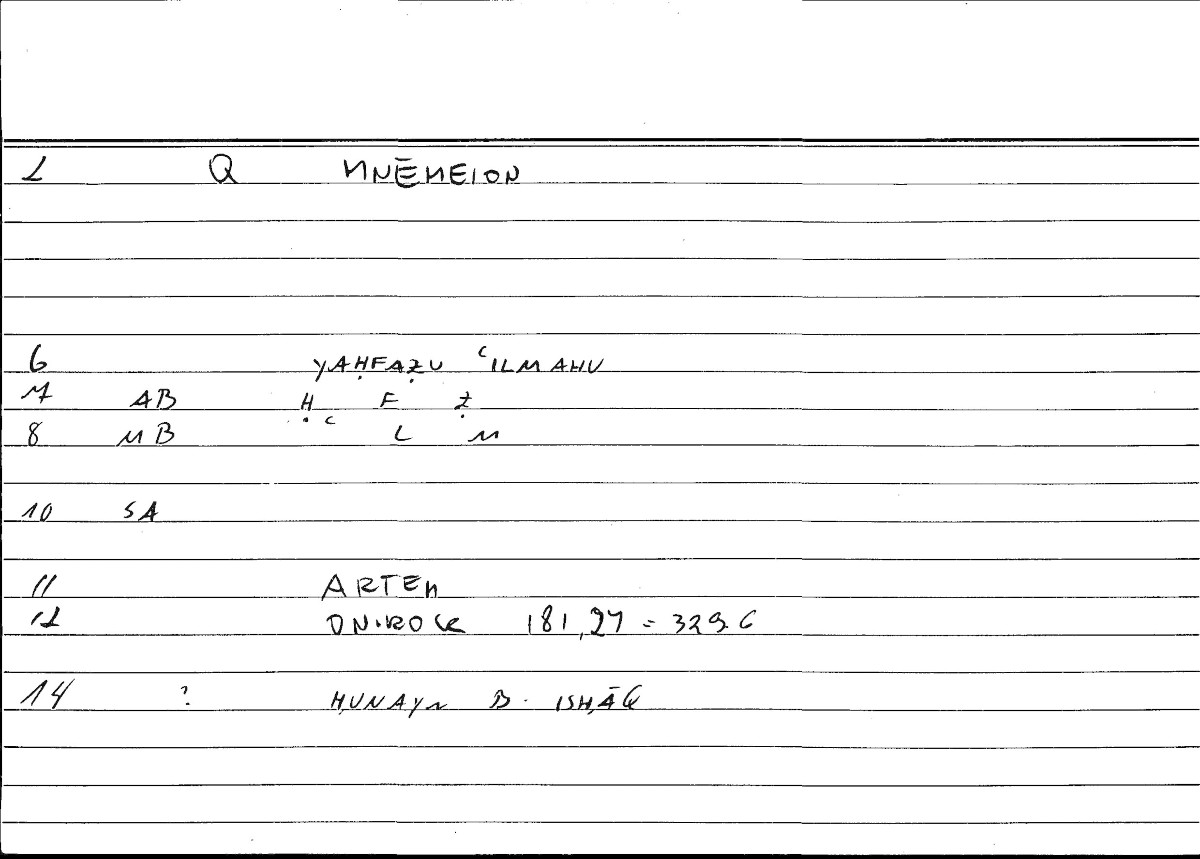 1 Q MNĒMEION
6 YAḤFAẒU ʿILMAHU
7 AB Ḥ F Ẓ
8 MB ʿ L M
10 SA
11 ARTEM
12 ONIROCR 181,27 = 329.6
14 ? ḤUNAYN B. ISḤĀQ